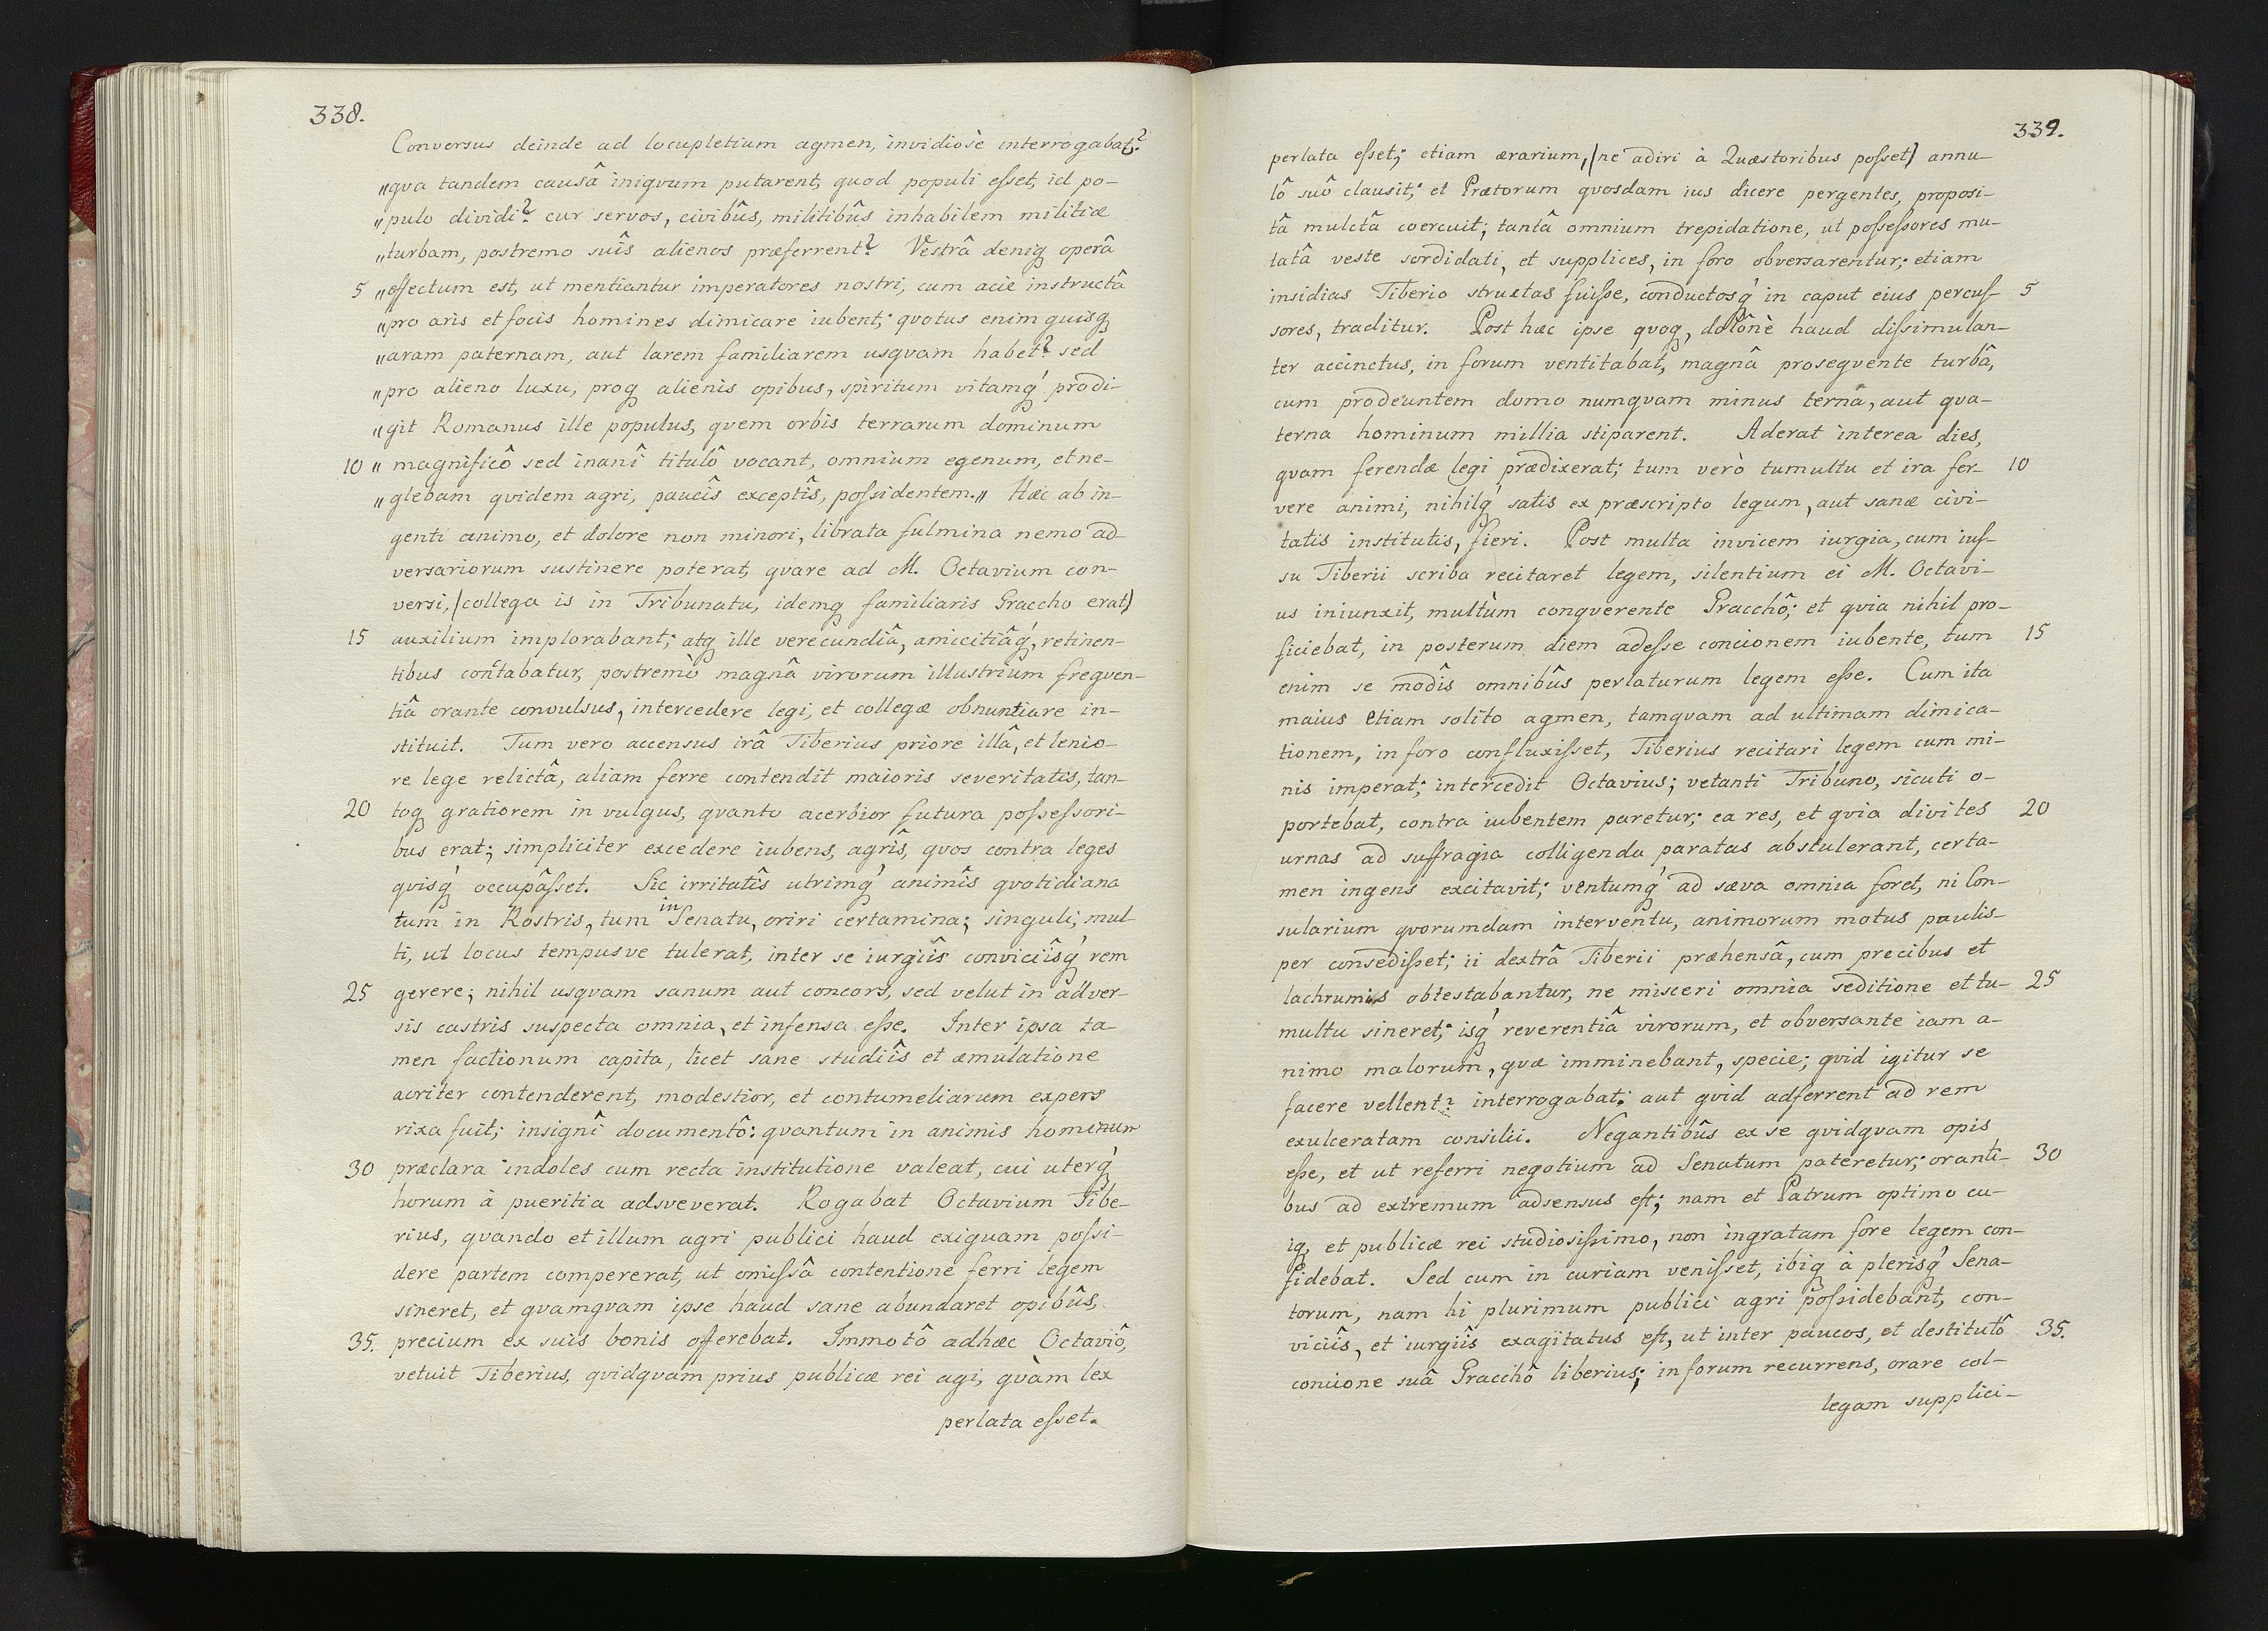 338.
Conversus deinde ad locupletium agmen, invidiosè interrogabat?
„qva tandem causâ iniqvum putarent, quod populi esset, id po-
„pulo dividi? cur servos, civibûs, militibûs inhabilem militiæ
„turbam, postremo suîs alienos præferrent? Vestrâ deniq operâ
5 „effectum est, ut mentiantur imperatores nostri, cum aciê instructâ
„pro aris et focis homines dimicare iubent; qvotus enim quisq
„aram paternam, aut larem familiarem usqvam habet? sed
„pro alieno luxu, proq alienis opibus, spiritum vitamq́ prodi-
„git Romanus ille populus, qvem orbis terrarum dominum
10 „magnificô sed inanî titulô vocant, omnium egenum, et ne-
„glebam qvidem agri, paucîs exceptîs, possidentem.„ Hæc ab in-
genti animo, et dolore non minori, librata fulmina nemo ad
versariorum sustinere poterat, qvare ad M. Octavium con-
versi, (collega is in Tribunatu, idemq familiaris Graccho erat)
15 auxilium implorabant; atq ille verecundiâ, amicitiâq́, retinen-
tibus contabatur, postremò magnâ virorum illustrium freqven-
tiâ orante convulsus, intercedere legi, et collegæ obnuntiare in-
stituit. Tum vero accensus irâ Tiberius priore illâ, et lenio-
re lege relictâ, aliam ferre contendit maioris severitatis, tan-
20 toq gratiorem in vulgus, qvanto acerbior futura possessori-
bus erat; simpliciter excedere iubens, agrîs, qvos contra leges
qvisq́ occupâsset. Sic irritatîs utrimq́ animîs qvotidiana
tum in Rostris, tum in Senatu, oriri certamina; singuli, mul
ti, ut locus tempusve tulerat, inter se iurgiîs conviciîsq́ rem
25 gerere; nihil usqvam sanum aut concors, sed velut in adver-
sis castris suspecta omnia, et infensa esse. Inter ipsa ta
men factionum capita, licet sane studiîs et æmulatione
acriter contenderent, modestior, et contumeliarum expers
rixa fuit; insignî documentô: qvantum in animis hominum
30 præclara indoles cum recta institutione valeat, cui uterq́
horum à pueritia adsveverat. Rogabat Octavium Tibe-
rius, qvando et illum agri publici haud exiguam possi-
dere partem compererat, ut omissâ contentione ferri legem
sineret, et qvamqvam ipse haud sane abundaret opibûs,
35. precium ex suis bonis offerebat. Immotô adhæc Octaviô,
vetuit Tiberius, qvidqvam prius publicæ rei agi, qvàm lex
perlata esset.
339.
perlata esset; etiam ærarium, (ne adiri à Quæstoribus posset) annu-
lô suô clausit; et Prætorum qvosdam ius dicere pergentes, proposi-
tâ mulctâ coercuit; tantâ omnium trepidatione, ut possessores mu-
tatâ veste sordidati, et supplices, in foro obversarentur; etiam
insidias Tiberio structas fuisse, conductosq́ in caput eius percus- 5
sores, traditur. Post hæc ipse qvoq, dolônè haud dissimulan-
ter accinctus, in forum ventitabat, magnâ proseqvente turbâ,
cum prodeuntem domo numqvam minus ternâ, aut qva-
terna hominum millia stiparent. Aderat interea dies,
qvam ferendæ legi prædixerat; tum verò tumultu et ira fer- 10
vere animi, nihilq́ satis ex præscripto legum, aut sanæ civi-
tatis institutis, fieri. Post multa invicem iurgia, cum ius-
su Tiberii scriba recitaret legem, silentium ei M. Octavi-
us iniunxit, multùm conqverente Gracchô; et qvia nihil pro-
ficiebat, in posterum diem adesse concionem iubente, tum 15
enim se modîs omnibûs perlaturum legem esse. Cum ita
maius etiam solito agmen, tamqvam ad ultimam dimica-
tionem, in foro confluxisset, Tiberius recitari legem cum mi-
nis imperat; intercedit Octavius; vetanti Tribuno, sicuti o-
portebat, contra iubentem paretur; ea res, et qvia divites 20
urnas ad suffragia colligenda paratas abstulerant, certa-
men ingens excitavit; ventumq́ ad sæva omnia foret, ni Con-
sularium qvorumdam interventu, animorum motus paulis-
per consedisset; ii dextrâ Tiberii præhensâ, cum precibus et
lachrumis obtestabantur, ne misceri omnia seditione et tu- 25
multu sineret; isq́ reverentiâ virorum, et obversante iam a-
nimo malorum, qvæ imminebant, specie; qvid igitur se
facere vellent? interrogabat; aut qvid adferrent ad rem
exulceratam consilii. Negantibûs ex se qvidqvam opis
esse, et ut referri negotium ad Senatum pateretur; oranti- 30
bus ad extremum adsensus est; nam et Patrum optimo cu-
iq, et publicæ rei studiosissimo, non ingratam fore legem con-
fidebat. Sed cum in curiam venisset, ibiq à plerisq́ Sena-
torum, nam hi plurimum publici agri possidebant, con-
viciîs, et iurgiîs exagitatus est, ut inter paucos, et destitutô 35.
concione suâ Gracchô liberius; in forum recurrens, orare col-
legam supplici-